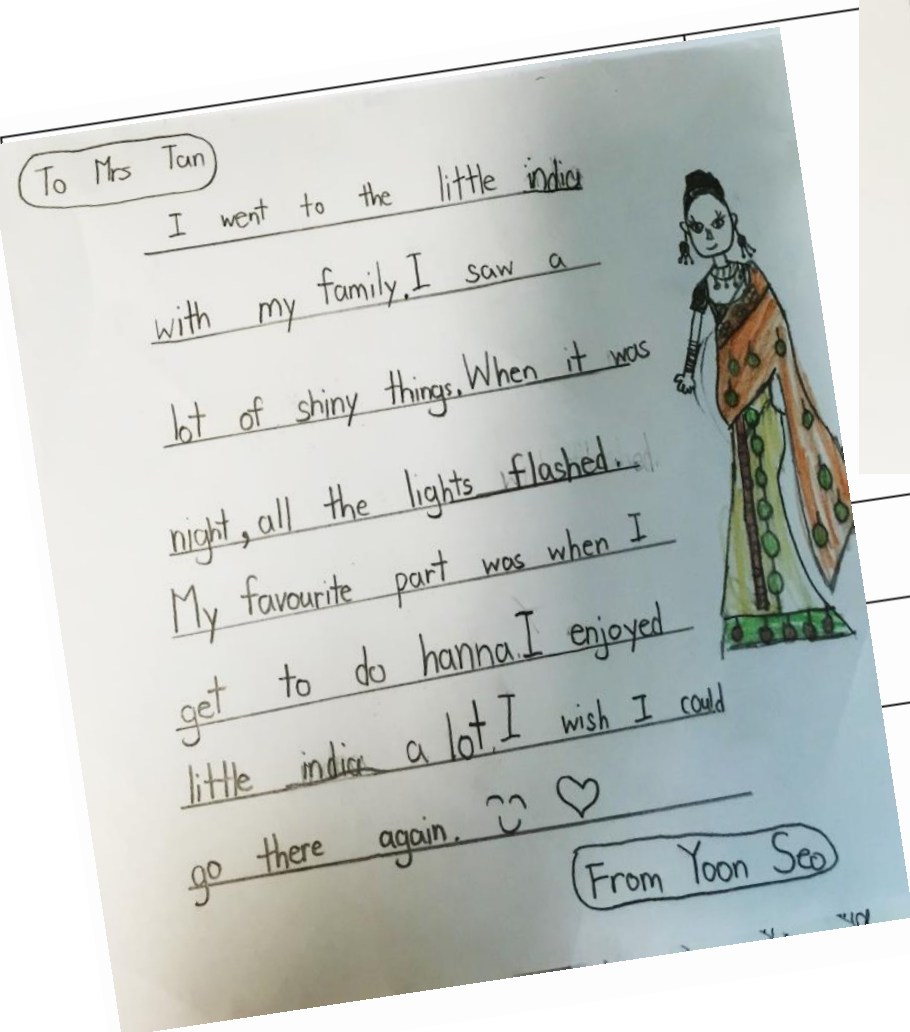 To Mrs Tan
I went to the little india
with my family. I saw a
lot of shiny things. When it was
night, all the lights flashed.
My favourite part was when I
get to do hanna. I enjoyed
little india a lot. I wish I could
go there again.
From Yoon Seo